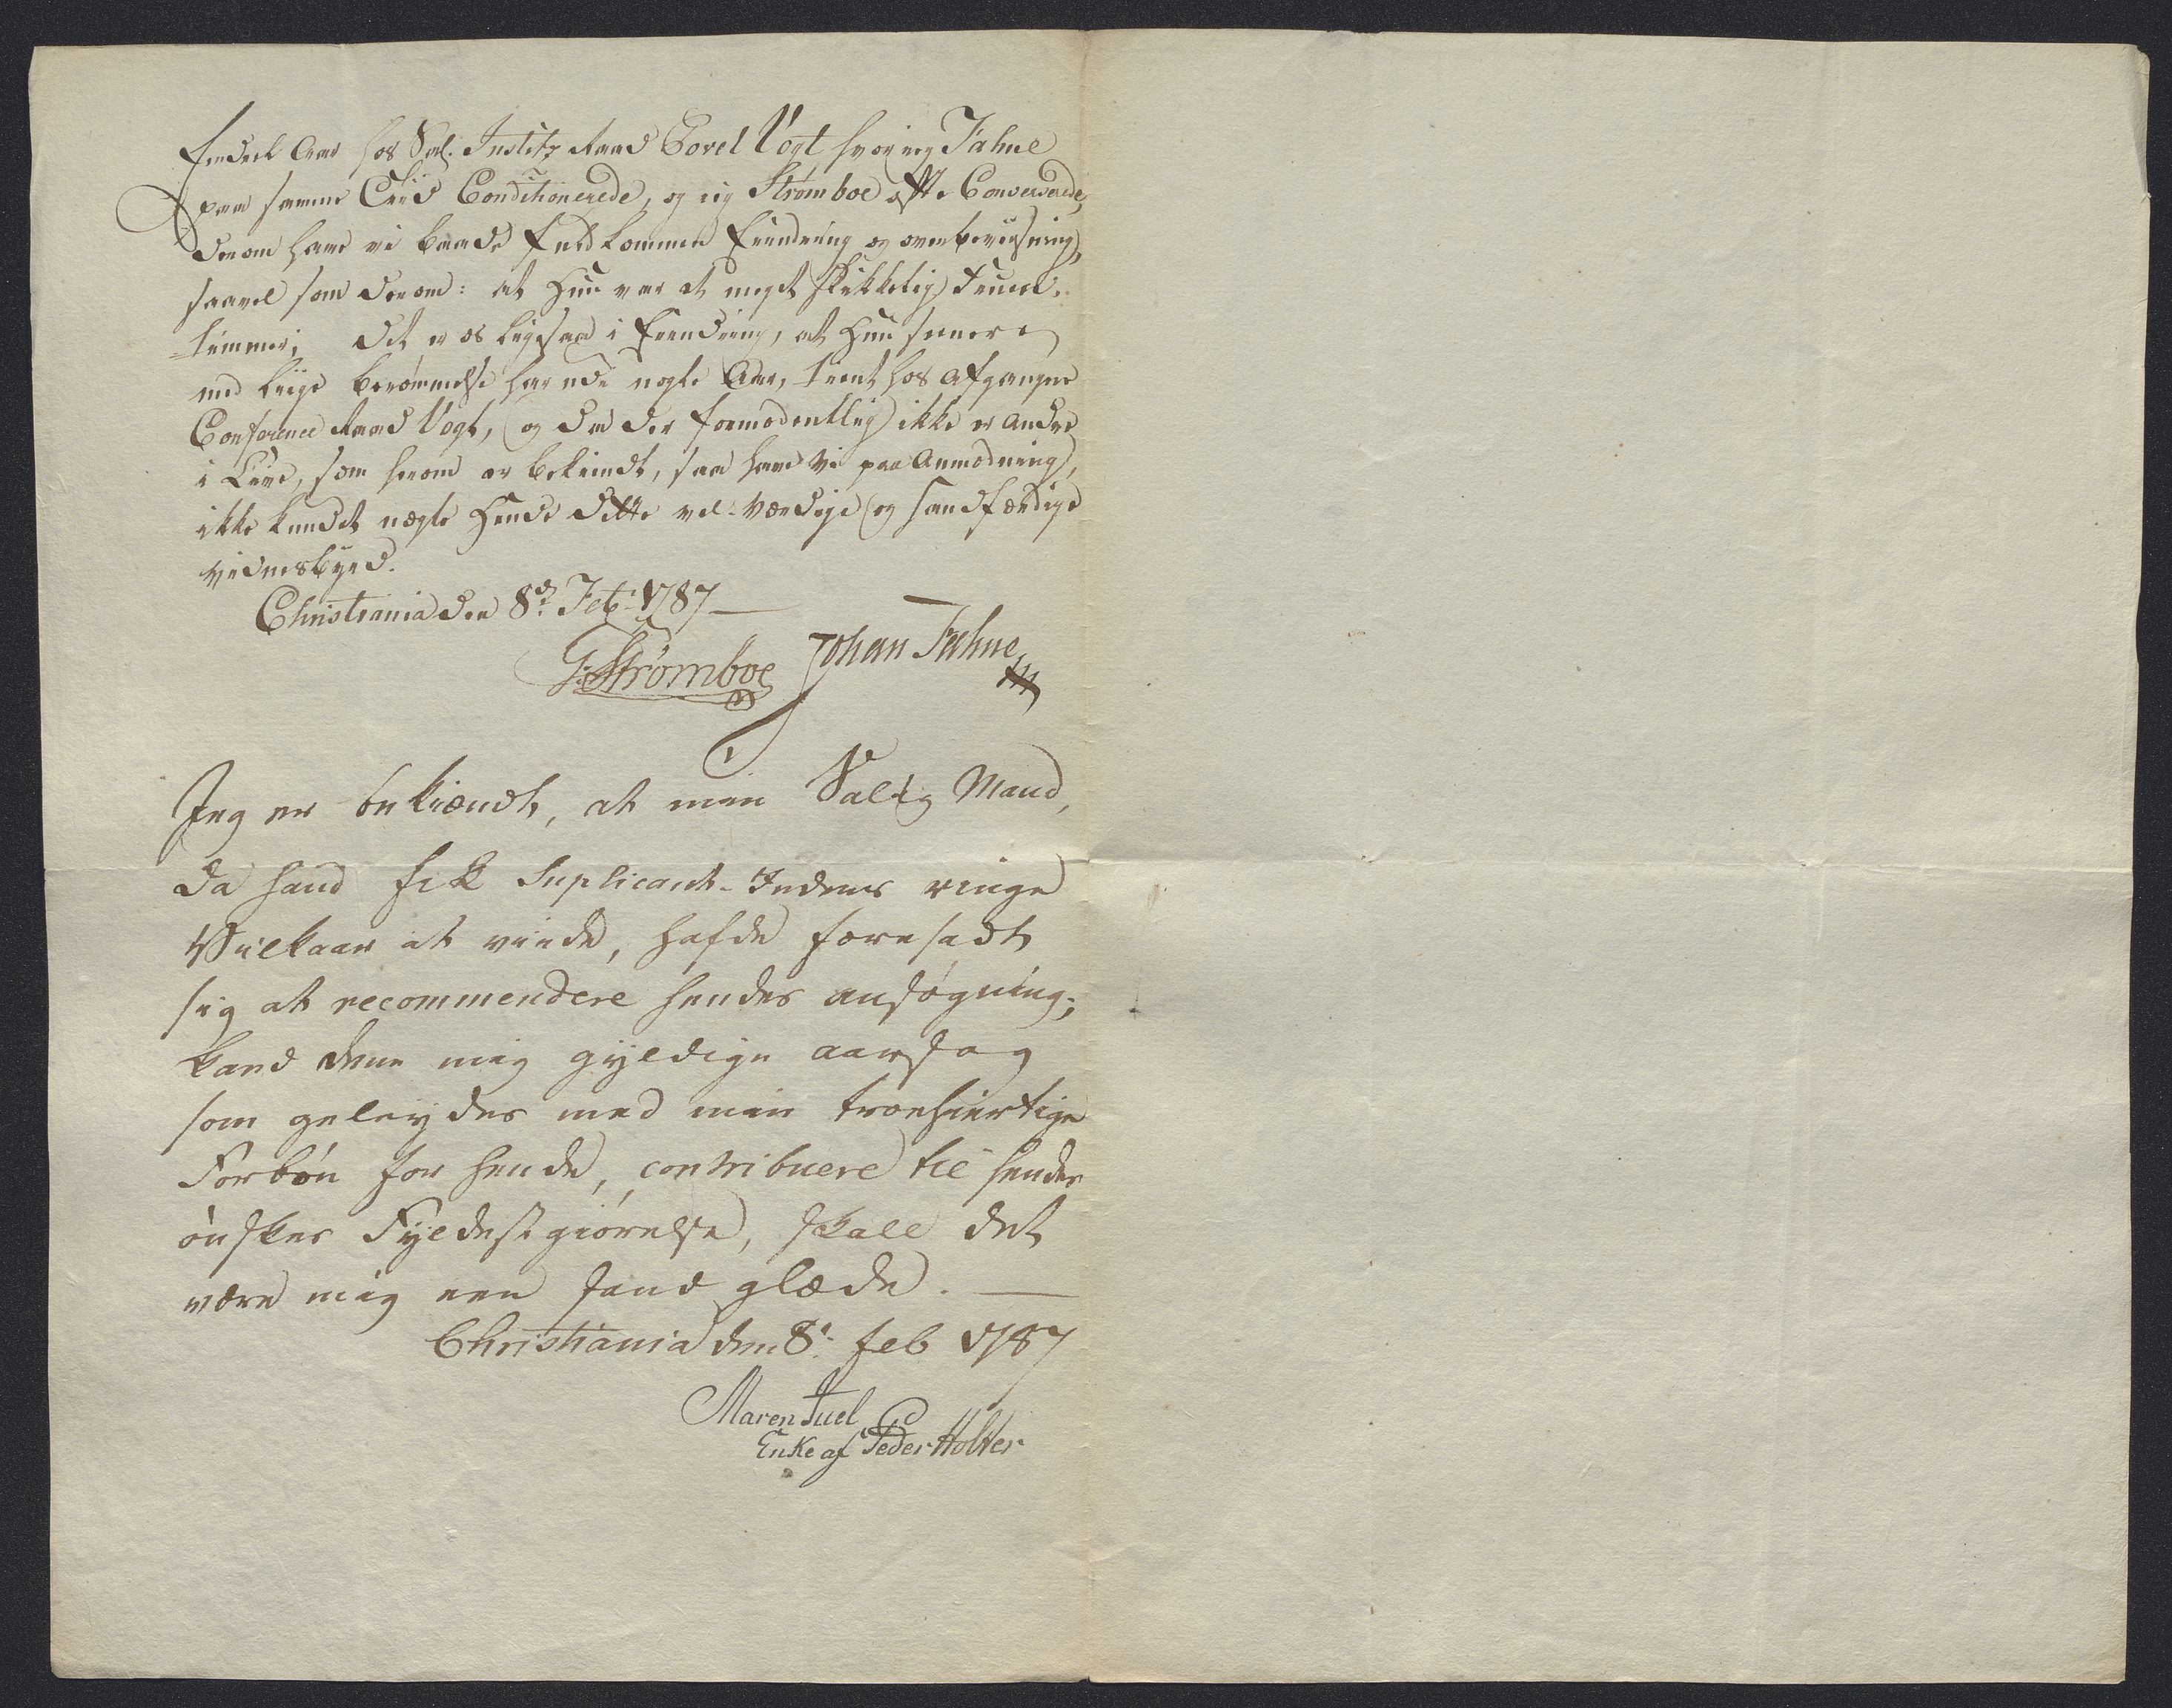 Eendeel Aar hos Sal. Justitz Raad Covel Vogt hvor ieg Fahne
paa samme Tiid Conditionerede, og ieg Strømboe offte Converserede,
derom have vi baade fuldkommen Erindring og overbeviisning,
saavel som derom: at Hun var et meget skikkelig Fruen-
timmer; det er os ligesaa i Erindring, at Hun siuner
med liige berømmelse har nok nogle Aar, tient hos afgangne
Conference Raad Vogt, og da der formodentlig ikke er andre
i Live, som herom er bekiendt, saa have vi paa Anmodning,
ikke kundet nægte Hende dette vel-værdige og sandfærdige
Vidnesbyrd.
Christiania den 8de Feb: 1787
G: Strømboe Johan Fahne
Jeg er bekiændt, at min Salig Mand,
da hand fik Suplicant-Indens ringe
Vilkaar at viide, hafde foresadt
sig at recommendere hendes ansøgning;
kand denne mig gyldige aarsag
som geleydes med min troehiertige
Forbøn for hende, contribuere til hendes
ønskes Fyldestgiørelse, skall det
være mig een sand glæde.
Christiania den 8: feb 1787
Maren Juel
Enke af Peder Holter